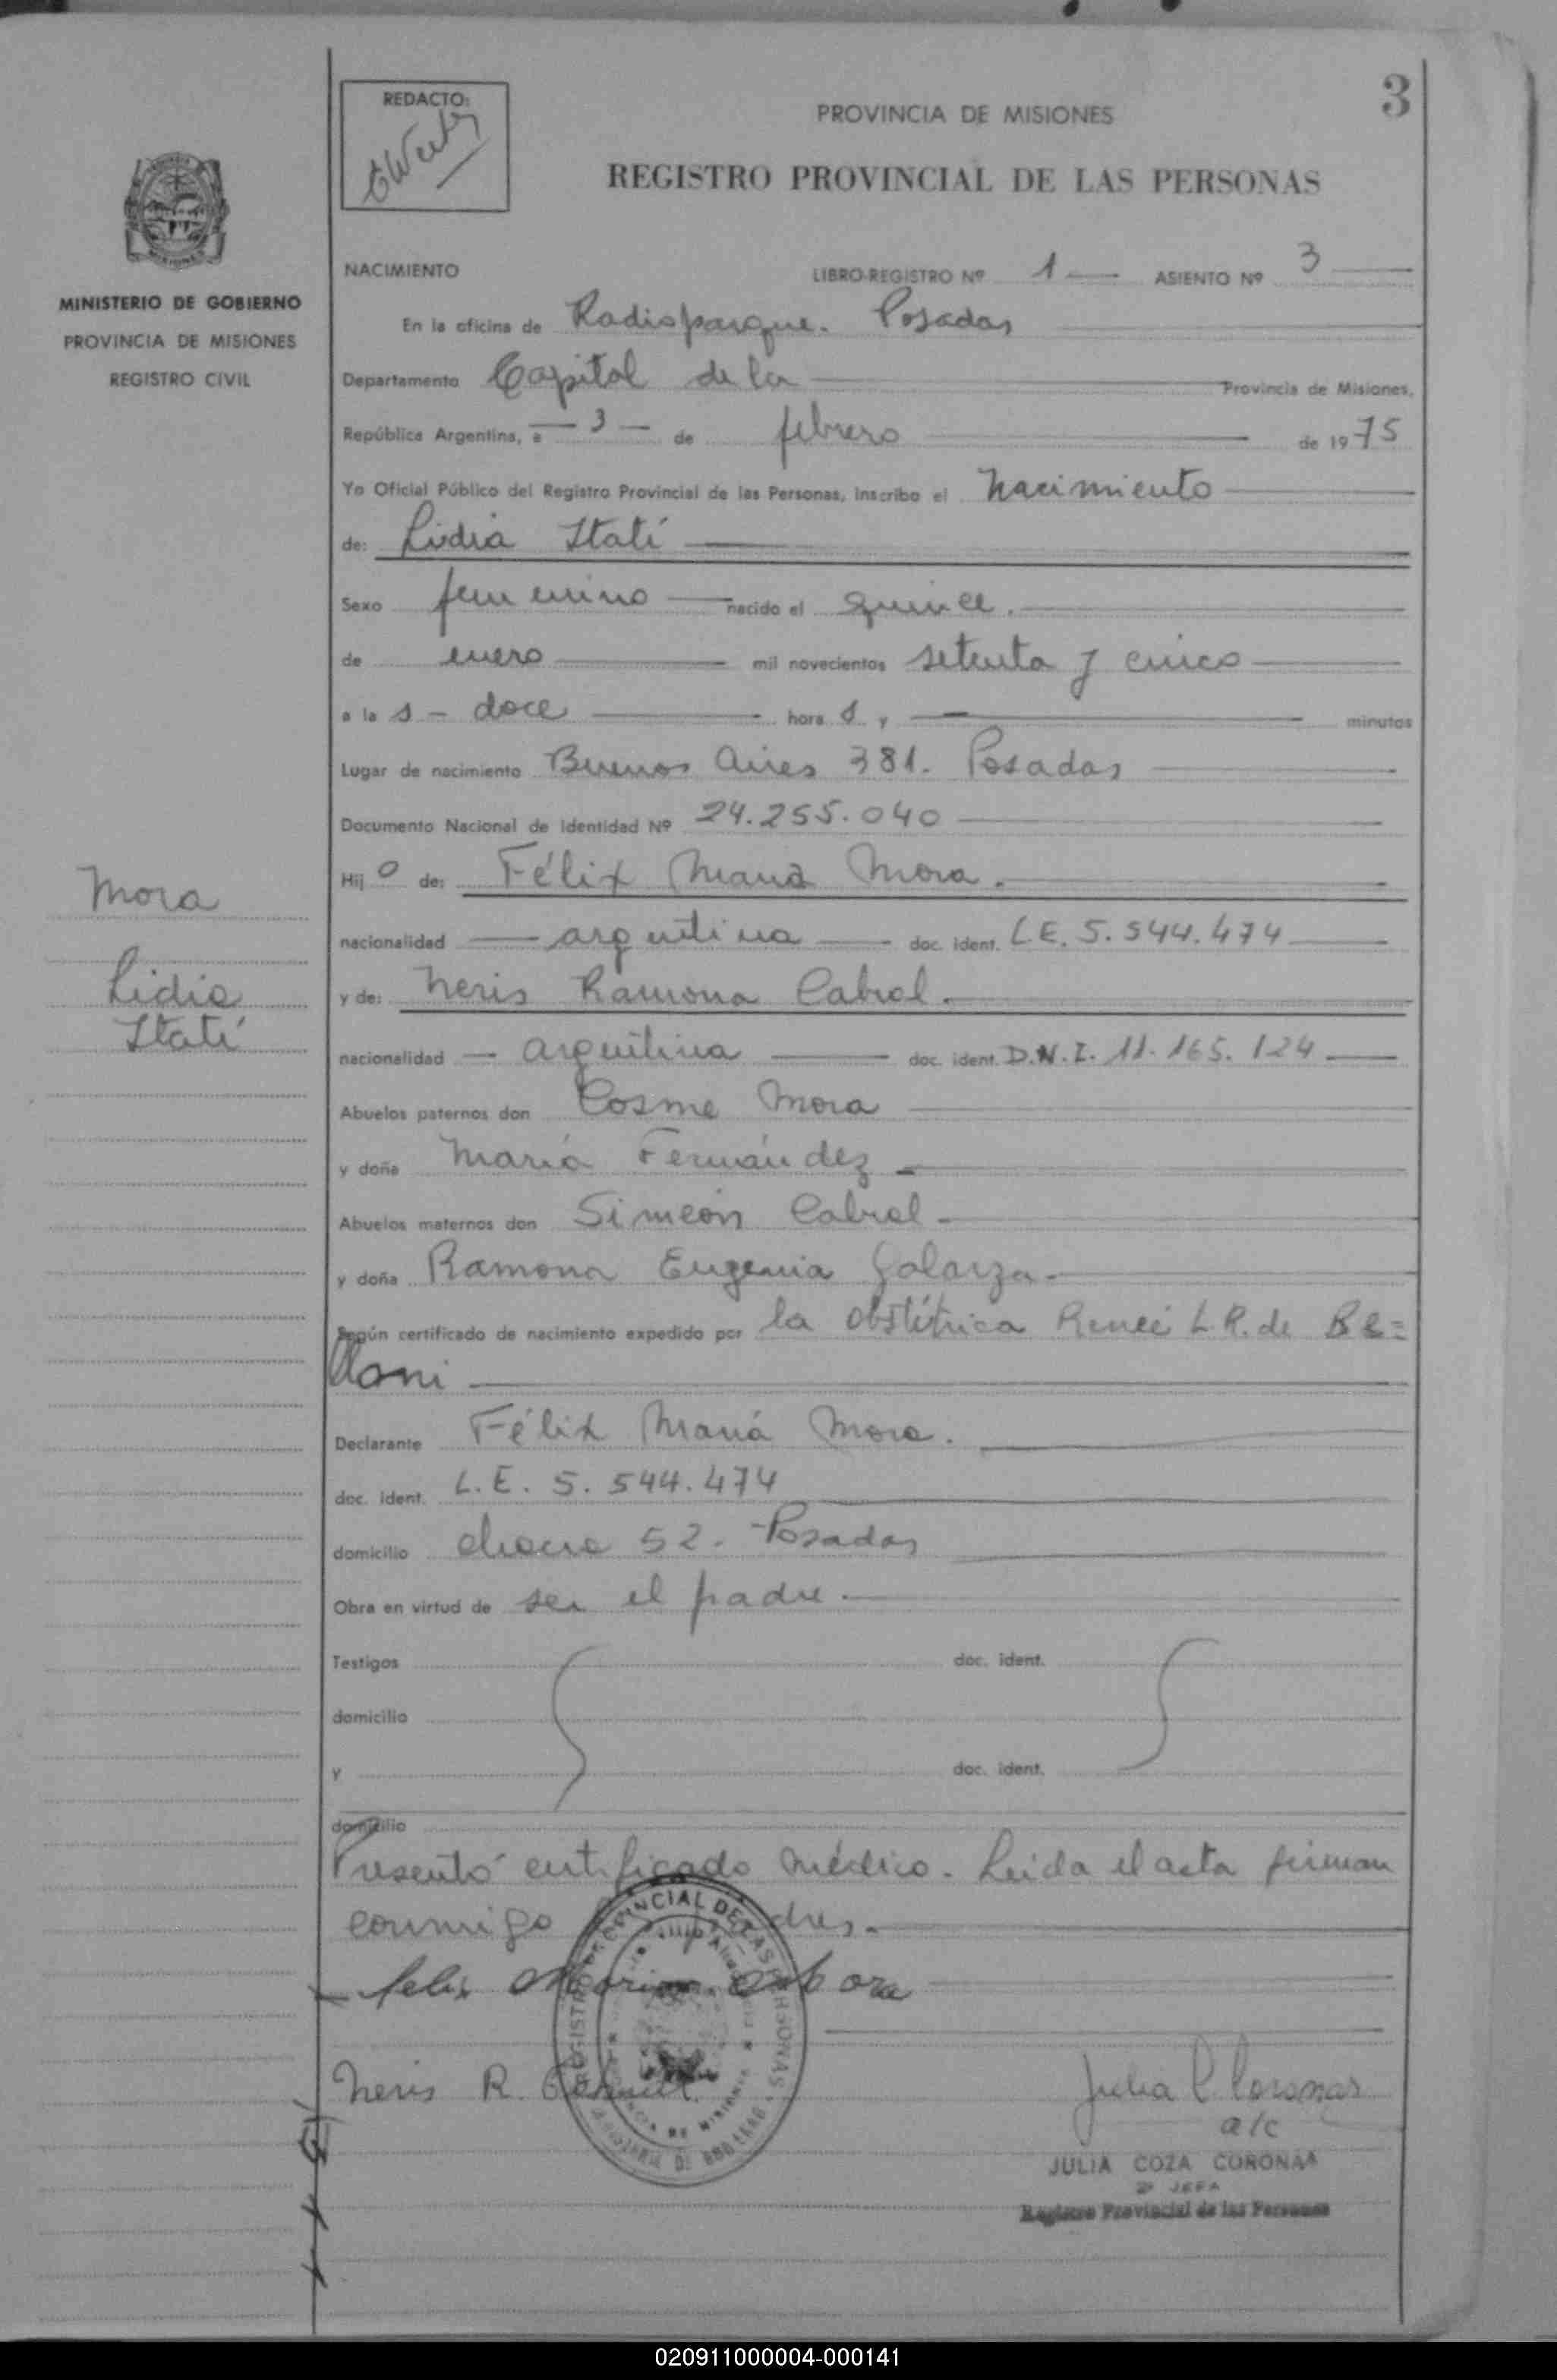 3
REDACTO:
PROVINCIA DE MISIONES
REGISTRO PROVINCIAL DE LAS PERSONAS
MINISTERIO DE GOBIERNO
PROVINCIA DE MISIONES
REGISTRO CIVIL
NACIMIENTO LIBRO-REGISTRO Nº 1 ASIENTO Nº 3
En la oficina de Radioparque. Posadas
Departamento Capital de la Provincia de Misiones,
República Argentina, a 3 de febrero de 1975
Yo Oficial Público del Registro Provincial de las Personas, inscribo el Nacimiento
de: Lidia Itatí
Sexo femenino nacido el quince.
de enero mil novecientos setenta y cinco
a la s - doce hora s y — minutos
Lugar de nacimiento Buenos Aires 381. Posadas
Documento Nacional de Identidad Nº 24.255.040
Hij o de: Félix María Mora.
nacionalidad argentina doc. ident. L.E. 5.544.474
y de: Neris Ramona Cabral.
nacionalidad argentina doc. ident. D.N.I. 11.165.124
Mora
Lidia
Itatí
Abuelos paternos don Cosme Mora
y doña María Fernández
Abuelos maternos don Simeón Cabral
y doña Ramona Eugenia Galarza
Según certificado de nacimiento expedido por la obstétrica Reneé L.R. de Be=
lloni
Declarante Félix María Mora.
doc. ident. L.E. 5.544.474
domicilio chacra 52. Posadas
Obra en virtud de ser el padre
Testigos doc. ident.
domicilio
y doc. ident.
domicilio
Presentó certificado médico. Leída el acta firman
conmigo
felix Maria Mora
Neris R. Cabral
REGISTRO PROVINCIAL DE LAS PERSONAS
Julia C. Coronas
a/c
JULIA COZA CORONAS
2ª JEFA
Registro Provincial de las Personas
020911000004-000141